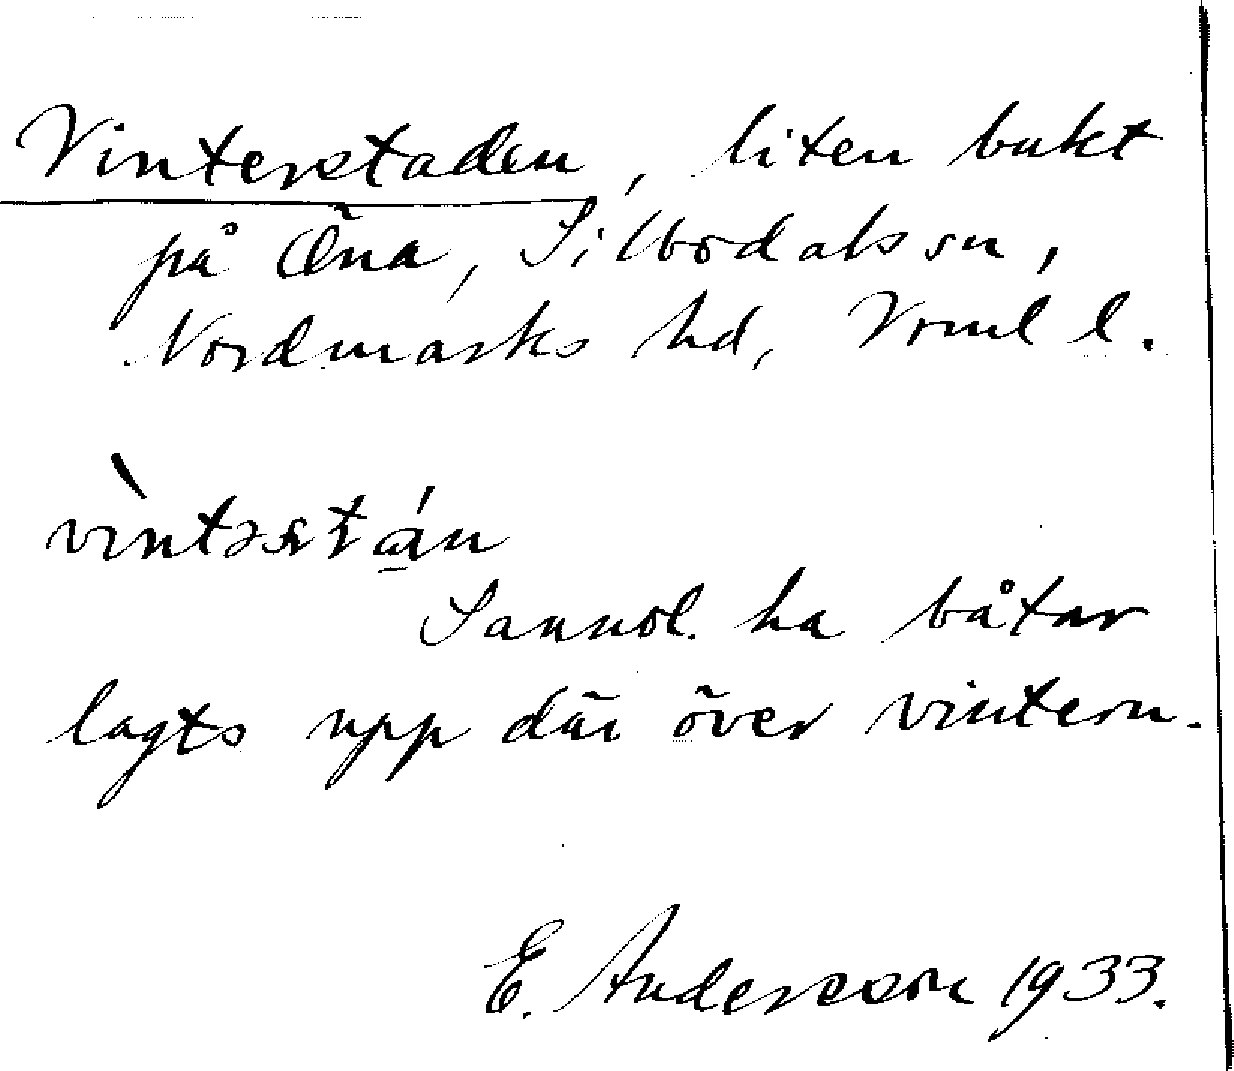 Vinterstaden, liten bukt
på Öna, Silbodals sn,
Nordmarks hd, Vrml l.
Sannol. ha båtar
lagts upp där över vintern.
E. Andersson 1933.